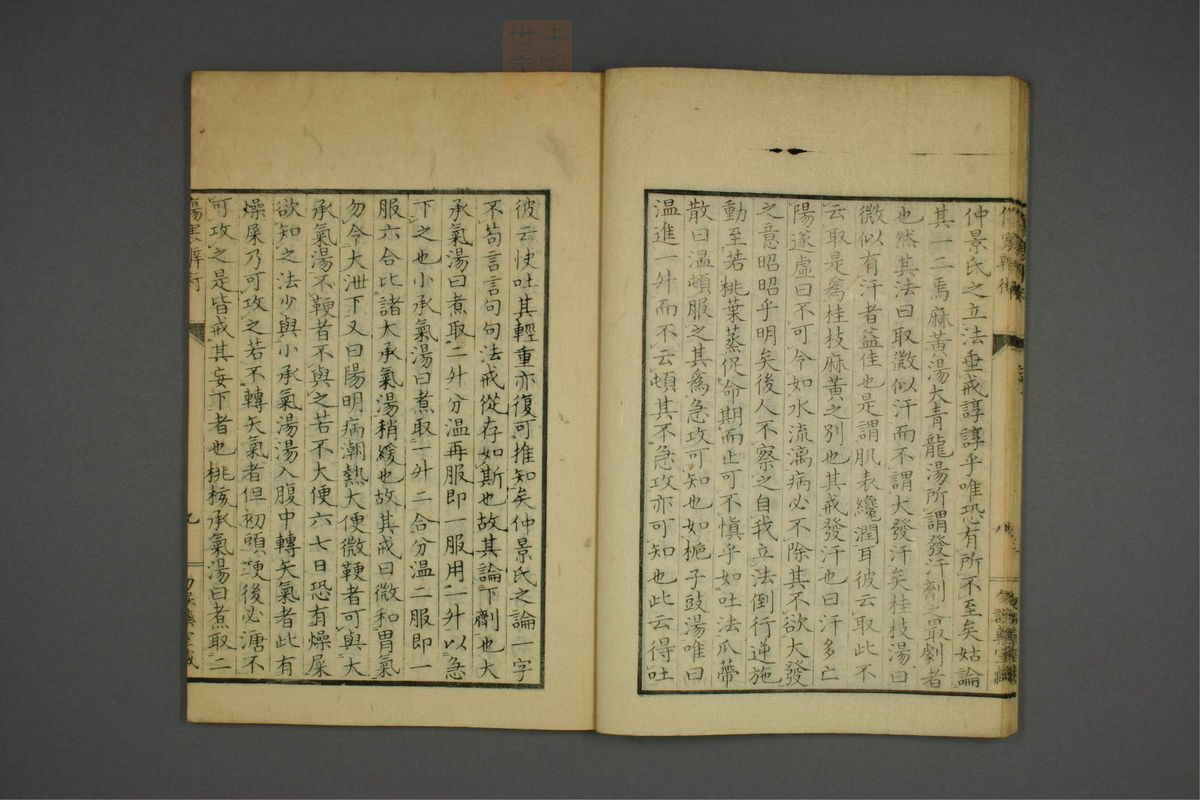 仲景氏之立法垂戒諄諄乎唯恐有所不至矣姑論
其一二焉麻黃湯大青龍湯所謂發汗劑之最劇者
也然其法曰取微似汗而不謂大發汗矣桂枝湯曰
微似有汗者益佳也是謂肌表纔潤耳彼云取此不
云取是爲桂枝麻黃之別也其戒發汗也曰汗多亡
陽遂虛曰不可令如水流漓病必不除其不欲大發
之意昭昭乎明矣後人不察之自我立法倒行逆施
動至若桃葉蒸促命期而止可不愼乎如吐法瓜蔕
散曰溫頓服之其爲急攻可知也如梔子豉湯唯曰
溫進一升而不云頓其不急攻亦可知也此云得吐
彼云快吐其輕重亦復可推知矣仲景氏之論一字
不苟言言句句法戒從存如斯也故其論下劑也大
承氣湯曰煮取二升分温再服即一服用一升以急
下之也小承氣湯曰煮取一升二合分温二服即一
服六合比諸大承氣湯稍緩也故其戒曰微和胃氣
勿令大泄下又曰陽明病潮熱大便微鞕者可與大
承氣湯不鞕者不與之若不大便六七日恐有燥屎
欲知之法少與小承氣湯湯入腹中轉矢氣者此有
燥屎乃可攻之若不轉矢氣者但初頭鞕後必溏不
可攻之是皆戒其妄下者也桃核承氣湯曰煮取二
傷寒辨術
九